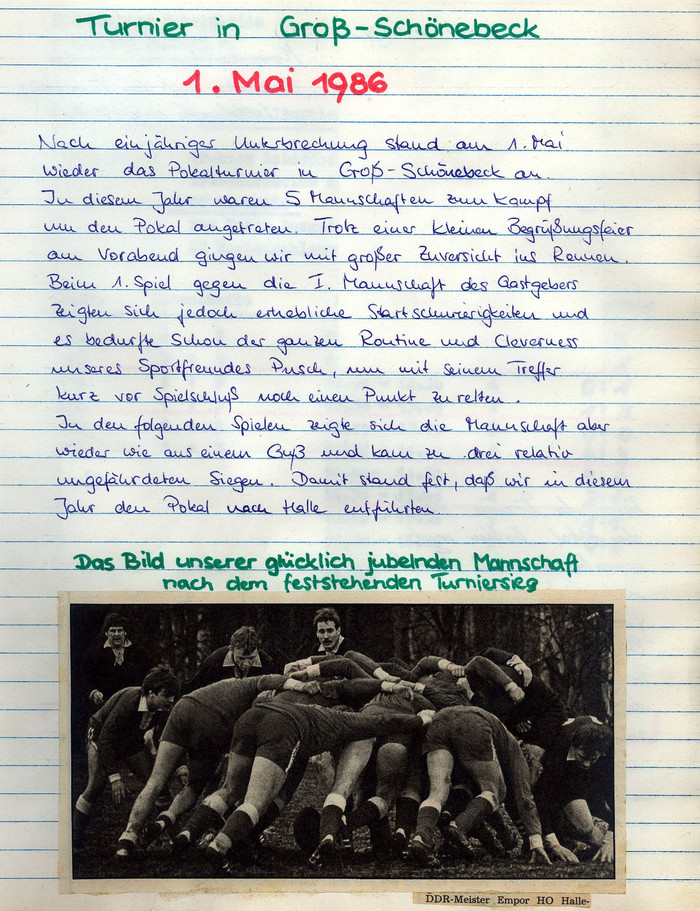 Turnier in Groß-Schönebeck
1. Mai 1986
Nach einjähriger Unterbrechung stand am 1. Mai
wieder das Pokalturnier in Groß-Schönebeck an.
In diesem Jahr waren 5 Mannschaften zum Kampf
um den Pokal angetreten. Trotz einer kleinen Begrüßungsfeier
am Vorabend gingen wir mit großer Zuversicht ins Rennen.
Beim 1. Spiel gegen die I. Mannschaft des Gastgebers
zeigten sich jedoch erhebliche Startschwierigkeiten und
es bedurfte schon der ganzen Routine und Cleverness
unseres Sportfreundes Pusch, um mit seinem Treffer
kurz vor Spielschluß noch einen Punkt zu retten.
In den folgenden Spielen zeigte sich die Mannschaft aber
wieder wie aus einem Guß und kam zu drei relativ
ungefährdeten Siegen. Damit stand fest, daß wir in diesem
Jahr den Pokal nach Halle entführten.
Das Bild unserer glücklich jubelnden Mannschaft
nach dem feststehenden Turniersieg
DDR-Meister Empor HO Halle-